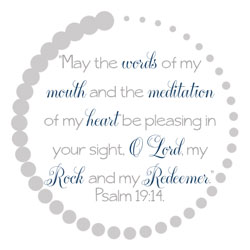 "May the words of my
mouth and the meditation
of my heart be pleasing in
your sight, O Lord, my
Rock and my Redeemer."
Psalm 19:14.